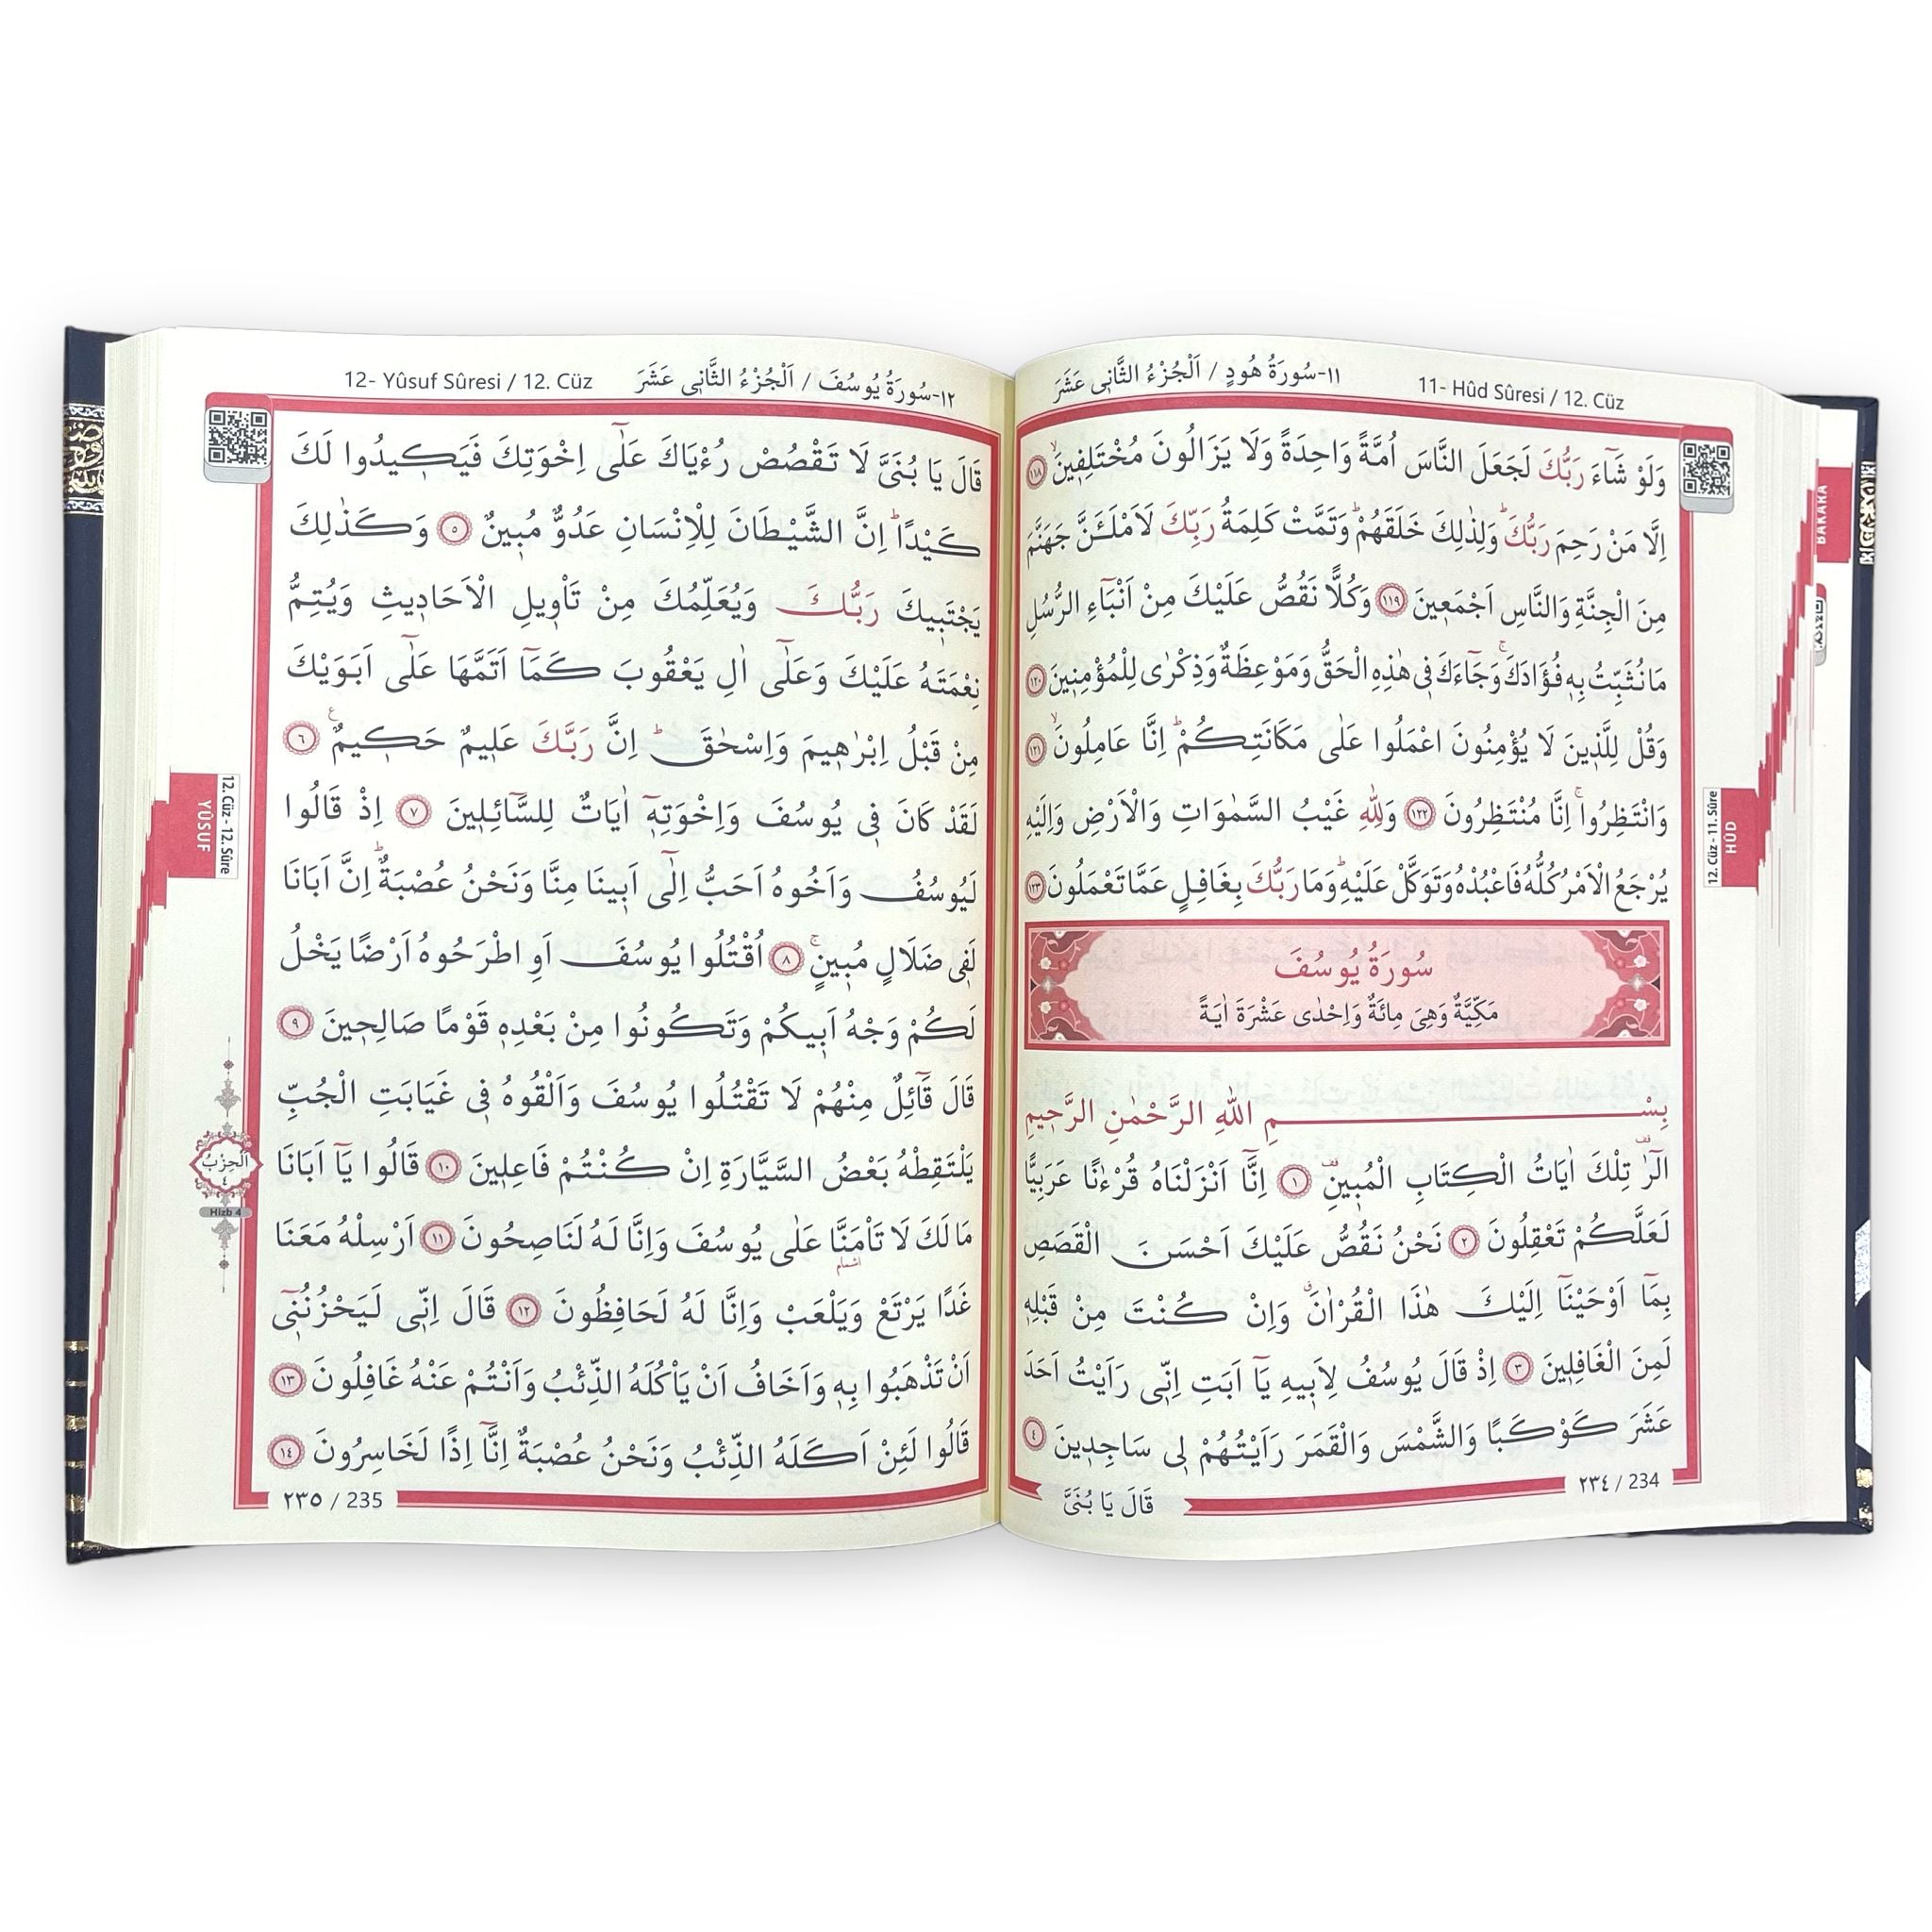 ١١-سُورَةُ هُودٍ / اَلْجُزْءُ الثَّانٖى عَشَرَ
11- Hûd Sûresi / 12. Cüz
وَلَوْ شَٓاءَ رَبُّكَ لَجَعَلَ النَّاسَ اُمَّةً وَاحِدَةً وَلَا يَزَالُونَ مُخْتَلِفٖينَۙ ١١٨
اِلَّا مَنْ رَحِمَ رَبُّكَؕ وَلِذٰلِكَ خَلَقَهُمْؕ وَتَمَّتْ كَلِمَةُ رَبِّكَ لَاَمْلَـَٔنَّ جَهَنَّمَ
مِنَ الْجِنَّةِ وَالنَّاسِ اَجْمَعٖينَ ١١٩ وَكُلًّا نَقُصُّ عَلَيْكَ مِنْ اَنْبَٓاءِ الرُّسُلِ
مَا نُثَبِّتُ بِهٖ فُؤَادَكَۚ وَجَٓاءَكَ فٖى هٰذِهِ الْحَقُّ وَمَوْعِظَةٌ وَذِكْرٰى لِلْمُؤْمِنٖينَ ١٢٠
وَقُلْ لِلَّذٖينَ لَا يُؤْمِنُونَ اعْمَلُوا عَلٰى مَكَانَتِكُمْؕ اِنَّا عَامِلُونَۙ ١٢١
وَانْتَظِرُواۚ اِنَّا مُنْتَظِرُونَ ١٢٢ وَلِلّٰهِ غَيْبُ السَّمٰوَاتِ وَالْاَرْضِ وَاِلَيْهِ
يُرْجَعُ الْاَمْرُ كُلُّهُ فَاعْبُدْهُ وَتَوَكَّلْ عَلَيْهِؕ وَمَا رَبُّكَ بِغَافِلٍ عَمَّا تَعْمَلُونَ ١٢٣
سُورَةُ يُوسُفَ
مَكِّيَّةٌ وَهِىَ مِائَةٌ وَاِحْدٰى عَشْرَةَ اٰيَةً
بِسْمِ اللّٰهِ الرَّحْمٰنِ الرَّحٖيمِ
الٓرٰ تِلْكَ اٰيَاتُ الْكِتَابِ الْمُبٖينِ ١ اِنَّٓا اَنْزَلْنَاهُ قُرْءٰنًا عَرَبِيًّا
لَعَلَّكُمْ تَعْقِلُونَ ٢ نَحْنُ نَقُصُّ عَلَيْكَ اَحْسَنَ الْقَصَصِ
بِمَٓا اَوْحَيْنَٓا اِلَيْكَ هٰذَا الْقُرْاٰنَۗ وَاِنْ كُنْتَ مِنْ قَبْلِهٖ
لَمِنَ الْغَافِلٖينَ ٣ اِذْ قَالَ يُوسُفُ لِاَبٖيهِ يَٓا اَبَتِ اِنّٖى رَاَيْتُ اَحَدَ
عَشَرَ كَوْكَبًا وَالشَّمْسَ وَالْقَمَرَ رَاَيْتُهُمْ لٖى سَاجِدٖينَ ٤
٢٣٤ / 234
قَالَ يَا بُنَىَّ
12. Cüz - 11. Sûre
HÛD
BAKARA
12- Yûsuf Sûresi / 12. Cüz
١٢-سُورَةُ يُوسُفَ / اَلْجُزْءُ الثَّانٖى عَشَرَ
قَالَ يَا بُنَىَّ لَا تَقْصُصْ رُءْيَاكَ عَلٰٓى اِخْوَتِكَ فَيَكٖيدُوا لَكَ
كَيْدًاؕ اِنَّ الشَّيْطَانَ لِلْاِنْسَانِ عَدُوٌّ مُبٖينٌ ٥ وَكَذٰلِكَ
يَجْتَبٖيكَ رَبُّكَ وَيُعَلِّمُكَ مِنْ تَاْوٖيلِ الْاَحَادٖيثِ وَيُتِمُّ
نِعْمَتَهُ عَلَيْكَ وَعَلٰٓى اٰلِ يَعْقُوبَ كَمَٓا اَتَمَّهَا عَلٰٓى اَبَوَيْكَ
مِنْ قَبْلُ اِبْرٰهٖيمَ وَاِسْحٰقَؕ اِنَّ رَبَّكَ عَلٖيمٌ حَكٖيمٌ ٦
لَقَدْ كَانَ فٖى يُوسُفَ وَاِخْوَتِهٖٓ اٰيَاتٌ لِلسَّٓائِلٖينَ ٧ اِذْ قَالُوا
لَيُوسُفُ وَاَخُوهُ اَحَبُّ اِلٰٓى اَبٖينَا مِنَّا وَنَحْنُ عُصْبَةٌؕ اِنَّ اَبَانَا
لَفٖى ضَلَالٍ مُبٖينٍۚ ٨ اُقْتُلُوا يُوسُفَ اَوِ اطْرَحُوهُ اَرْضًا يَخْلُ
لَكُمْ وَجْهُ اَبٖيكُمْ وَتَكُونُوا مِنْ بَعْدِهٖ قَوْمًا صَالِحٖينَ ٩
قَالَ قَٓائِلٌ مِنْهُمْ لَا تَقْتُلُوا يُوسُفَ وَاَلْقُوهُ فٖى غَيَابَتِ الْجُبِّ
يَلْتَقِطْهُ بَعْضُ السَّيَّارَةِ اِنْ كُنْتُمْ فَاعِلٖينَ ١٠ قَالُوا يَٓا اَبَانَا
مَا لَكَ لَا تَاْمَنَّا عَلٰى يُوسُفَ وَاِنَّا لَهُ لَنَاصِحُونَ ١١ اَرْسِلْهُ مَعَنَا
اشمام
غَدًا يَرْتَعْ وَيَلْعَبْ وَاِنَّا لَهُ لَحَافِظُونَ ١٢ قَالَ اِنّٖى لَيَحْزُنُنٖٓى
اَنْ تَذْهَبُوا بِهٖ وَاَخَافُ اَنْ يَاْكُلَهُ الذِّئْبُ وَاَنْتُمْ عَنْهُ غَافِلُونَ ١٣
قَالُوا لَئِنْ اَكَلَهُ الذِّئْبُ وَنَحْنُ عُصْبَةٌ اِنَّٓا اِذًا لَخَاسِرُونَ ١٤
٢٣٥ / 235
12. Cüz - 12. Sûre
YÛSUF
اَلْحِزْبُ
٤
Hizb 4